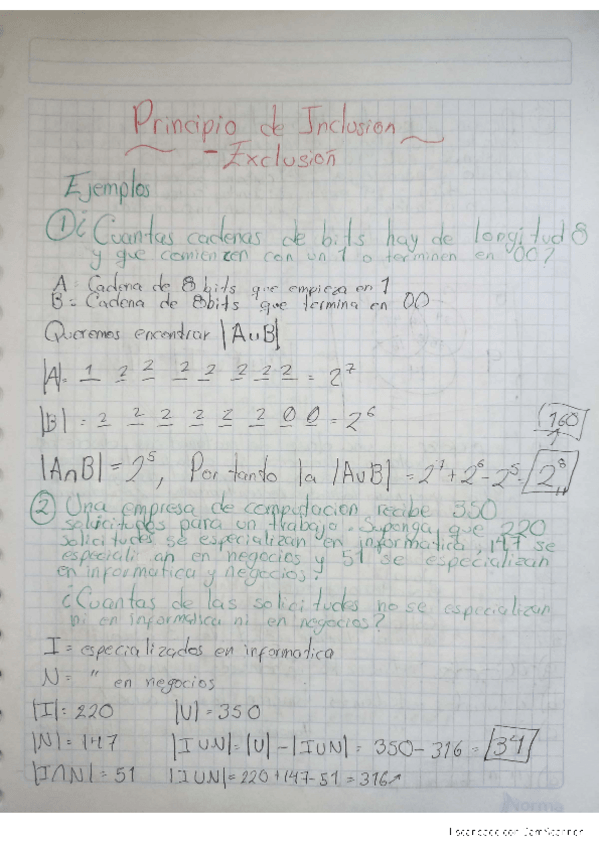 Principio de Inclusion
- Exclusión
Ejemplos
① ¿Cuantas cadenas de bits hay de longitud 8
y que comienzen con un 1 o terminen en 00?
A = Cadena de 8 bits que empieza en 1
B = Cadena de 8bits que termina en 00
Queremos encontrar |A∪B|
|A|= 1 2 2 2 2 2 2 2 = 2⁷
|B| = 2 2 2 2 2 2 0 0 = 2⁶
160
|A∩B| = 2⁵, Por tanto la |A∪B| = 2⁷+2⁶-2⁵= 2⁸
② Una empresa de computacion recibe 350
solicitudes para un trabajo. Suponga que 220
solicitudes se especializan en informatica, 147 se
especializan en negocios y 51 se especializan
en informatica y negocios?
¿Cuantas de las solicitudes no se especializan
ni en informatica ni en negocios?
I = especializados en informatica
N = " en negocios
|I|= 220 |U| = 350
|N|= 147 |I∪N|=|U|-|I∪N| = 350-316 = 34
|I∩N|= 51 |I∪N|= 220+147-51=316
Norma
Escaneado con CamScanner